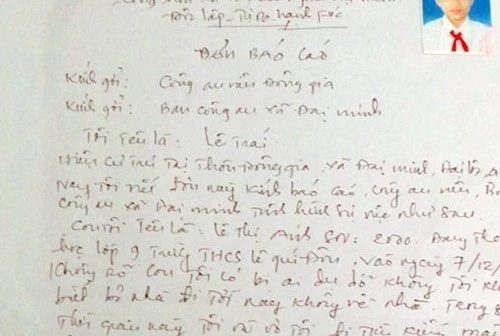 Độc lập - Tự do hạnh phúc
ĐƠN BÁO CÁO
Kính gởi: Công an viên Đông gia
Kính gởi: Ban công an xã Đại minh
Tôi tên là: Lê Trai
Hiện cư trú tại thôn Đông gia, xã Đại minh, Đại lộ
Nay tôi viết đơn này kính báo cáo, công an viên, B
công an xã Đại minh tình hình sự việc như sau.
Con tôi tên là: Lê Thị Anh SN: 2000. Đang the
học lớp 9 trường THCS Lê quí Đôn. Vào ngày 7/12/
Không rõ con tôi có bị ai dụ dỗ không tôi kh
biết bỏ nhà đi tối nay không về nhà. Trong
thời gian này tôi và vợ tôi đi tìm kiếm